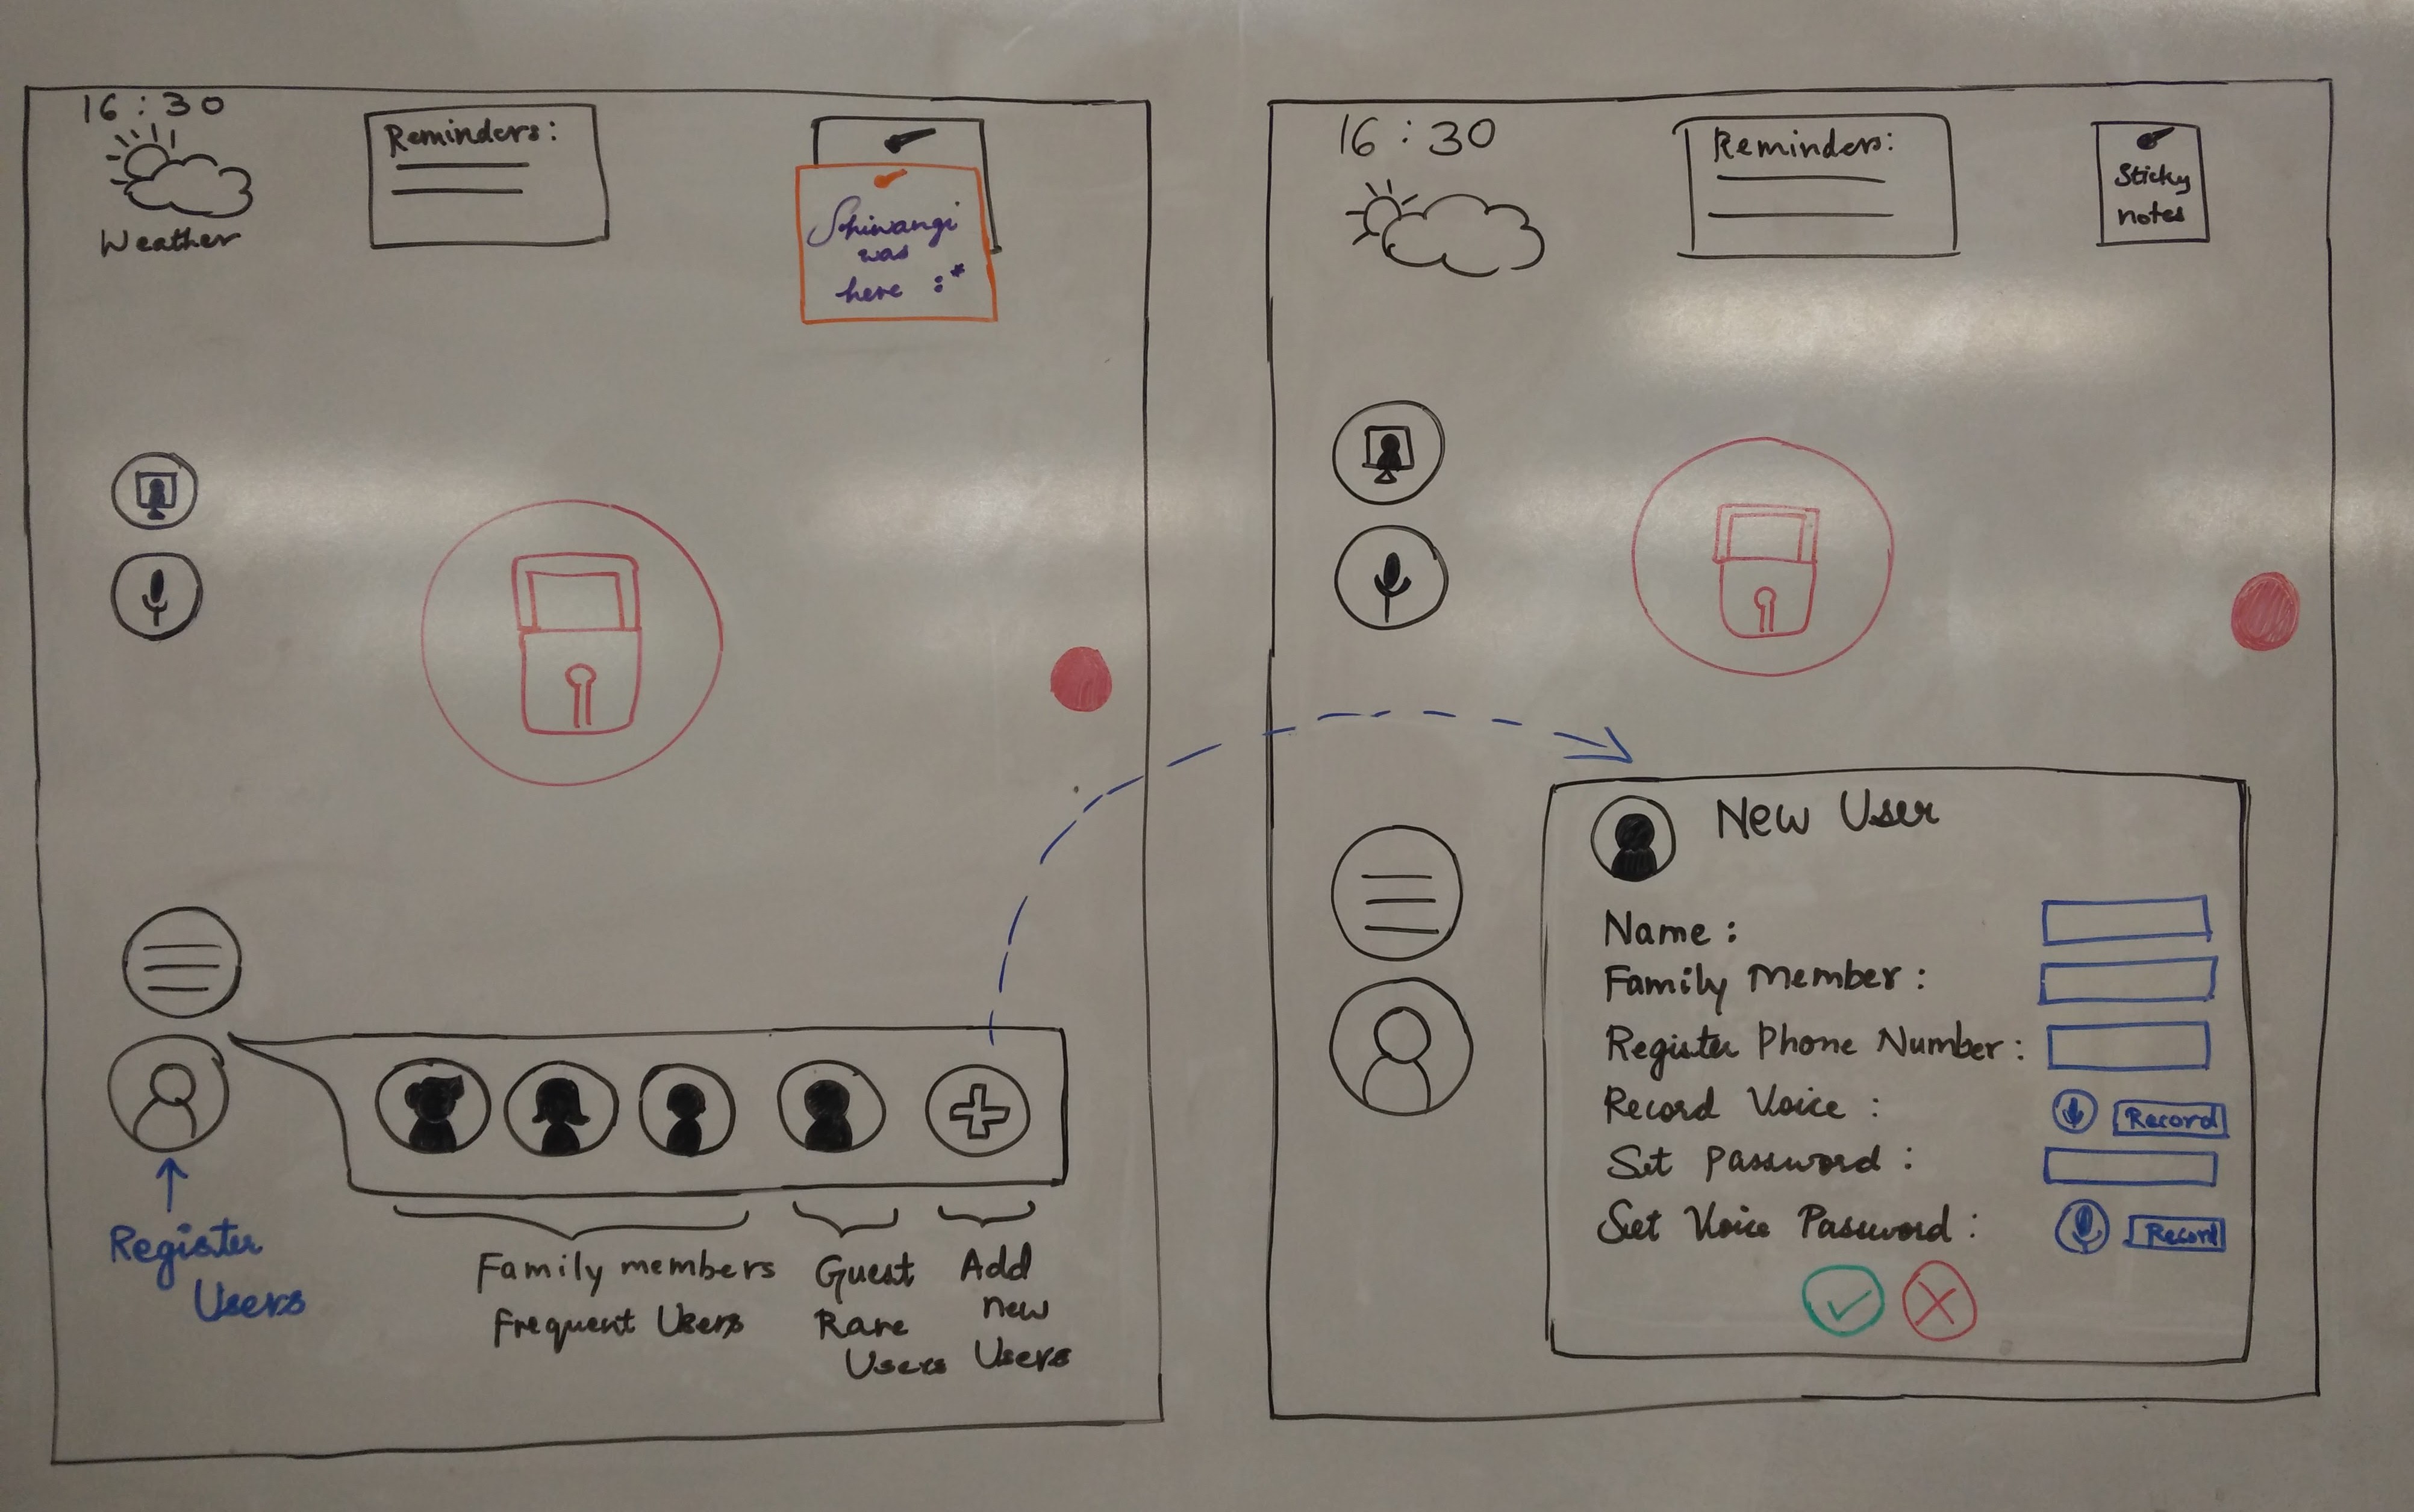 16:30
Weather
Reminders:
Shiwangi
was
here :*
Register
Users
Family members
Frequent Users
Guest
Rare
Users
Add
new
Users
16:30
Reminders:
Sticky
notes
New User
Name :
Family Member :
Register Phone Number :
Record Voice :
Record
Set Password :
Set Voice Password :
Record